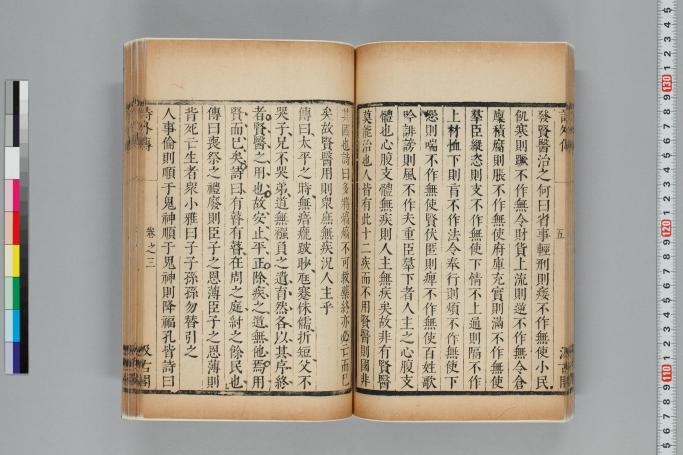 發賢醫治之何曰省事輕刑則痿不作無使小民
飢寒則蹷不作無令財貨上流則逆不作無令倉
廩積腐則脹不作無使府庫充實則滿不作無使
羣臣縱恣則支不作無使下情不上通則隔不作
上材恤下則盲不作法令奉行則煩不作無使下
怨則喘不作無使賢伏匿則痺不作無使百姓歌
吟誹謗則風不作夫重臣羣下者人主之心腹支
體也心腹支體無疾則人主無疾矣故非有賢醫
莫能治也人皆有此十二疾而不用賢醫則國非
其國也詩曰多將熇熇不可救藥終亦必亡而已
矣故賢醫用則衆庶無疾況人主乎
傳曰太平之時無瘖㾏跛眇尫蹇侏儒折短父不
哭子兄不哭弟道無襁負之遺育然各以其序終
者賢醫之用也故安止平正除疾之道無他焉用
賢而已矣詩曰有瞽有瞽在周之庭紂之餘民也
傳曰喪祭之禮廢則臣子之恩薄臣子之恩薄則
背死亡生者衆小雅曰子子孫孫勿替引之
人事倫則順于鬼神順于鬼神則降福孔皆詩曰
詩外傳
卷之三
汲古閣
五